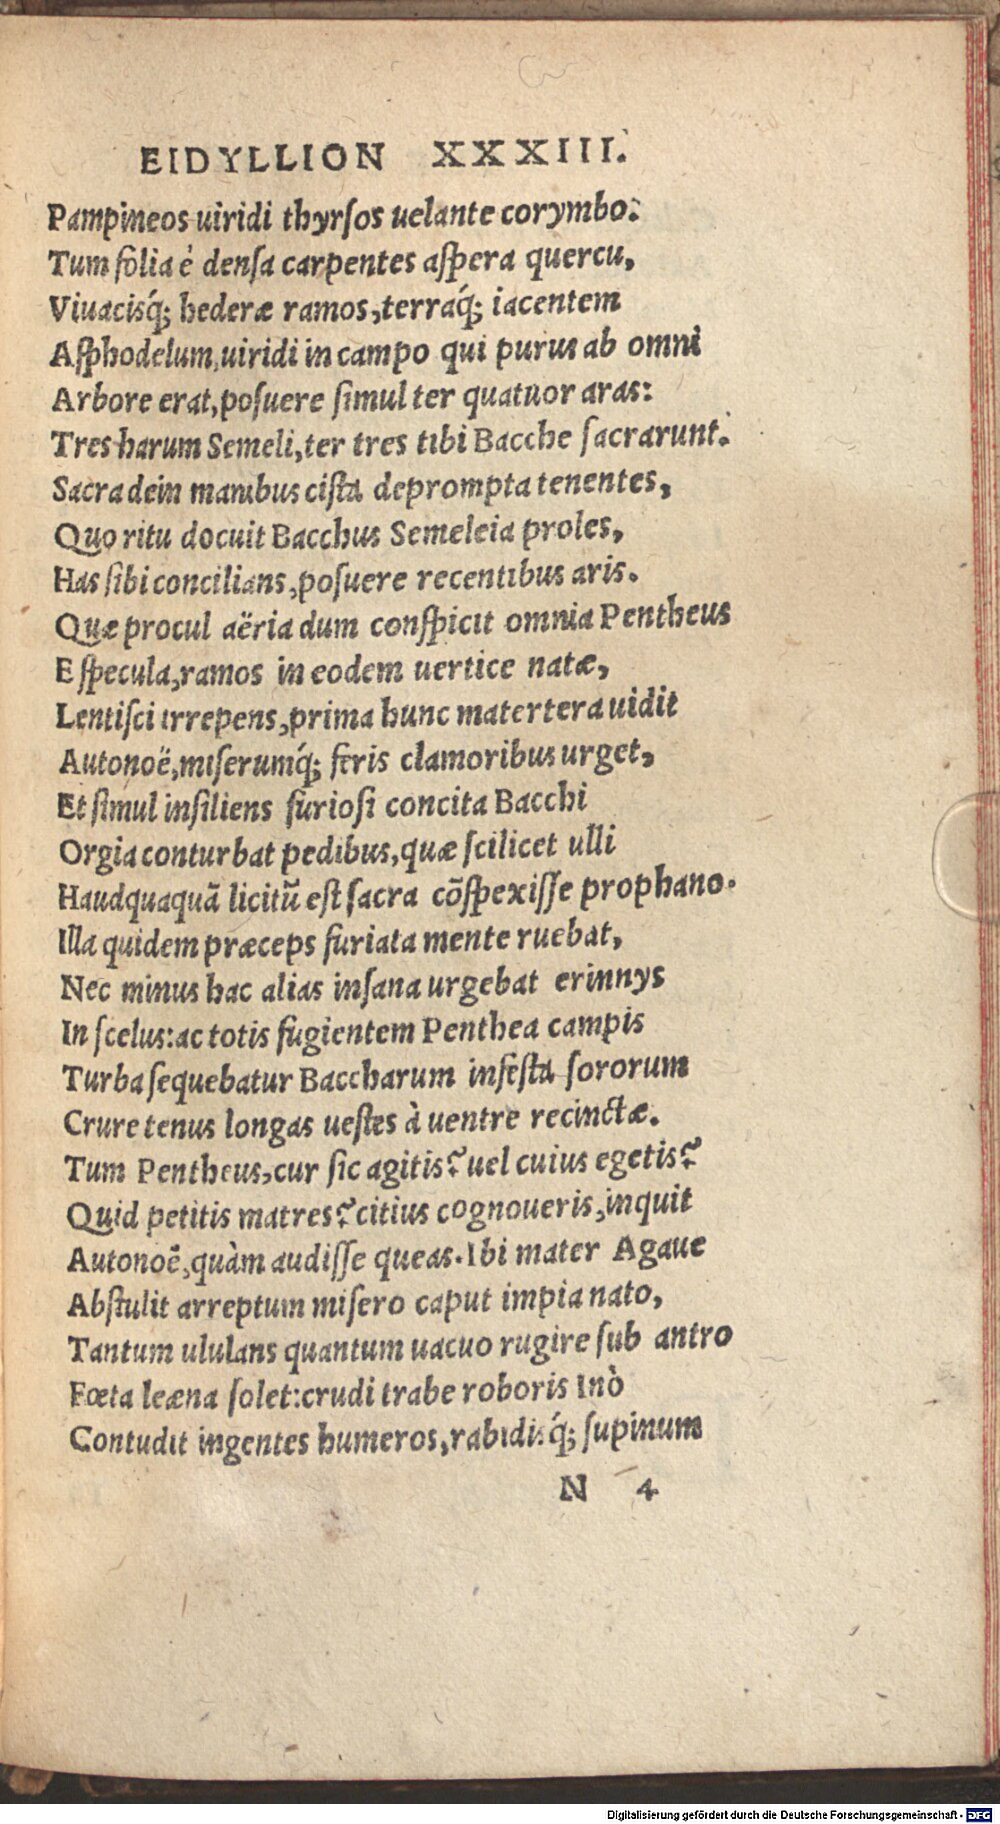 EIDYLLION XXXIII.
Pampineos uiridi thyrſos uelante corymbo:
Tum folia è denſa carpentes aſpera quercu,
Viuacisq́; hederæ ramos, terraq́; iacentem
Aſphodelum, uiridi in campo qui purus ab omni
Arbore erat, poſuere ſimul ter quatuor aras:
Tres harum Semeli, ter tres tibi Bacche ſacrarunt.
Sacra dein manibus ciſta deprompta tenentes,
Quo ritu docuit Bacchus Semeleia proles,
Has ſibi concilians, poſuere recentibus aris.
Quæ procul aëria dum conſpicit omnia Pentheus
E ſpecula, ramos in eodem uertice natæ,
Lentiſci irrepens, prima hunc matertera uidit
Autonoë, miſerumq́; feris clamoribus urget,
Et ſimul inſiliens furioſi concita Bacchi
Orgia conturbat pedibus, quæ ſcilicet ulli
Haudquaquã licitũ eſt ſacra cõſpexiſſe prophano.
Illa quidem præceps furiata mente ruebat,
Nec minus hac alias inſana urgebat erinnys
In ſcelus: ac totis fugientem Penthea campis
Turba ſequebatur Baccharum infeſta ſororum
Crure tenus longas ueſtes à uentre recinctæ.
Tum Pentheus, cur ſic agitis? uel cuius egetis?
Quid petitis matres? citius cognoueris, inquit
Autonoë, quàm audiſſe queas. Ibi mater Agaue
Abſtulit arreptum miſero caput impia nato,
Tantum ululans quantum uacuo rugire ſub antro
Fœta leæna ſolet: crudi trabe roboris Inò
Contudit ingentes humeros, rabidiq́; ſupinum
N 4
Digitalisierung gefördert durch die Deutsche Forschungsgemeinschaft - DFG